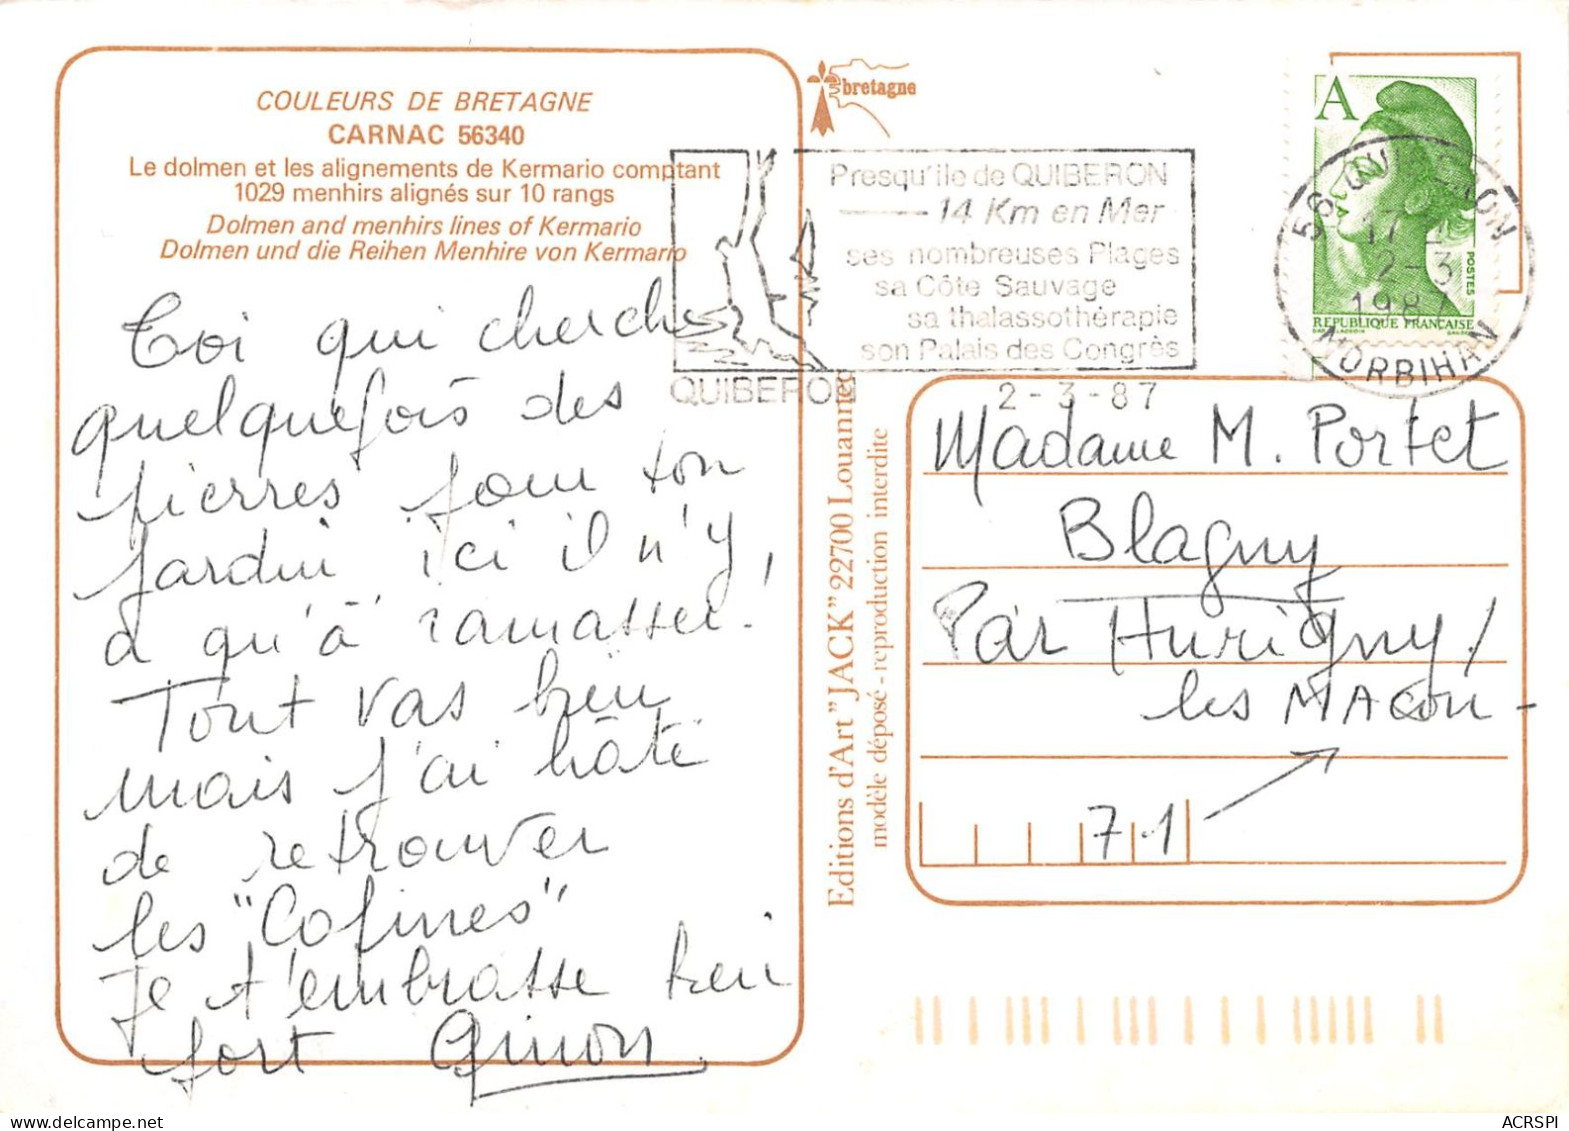 COULEURS DE BRETAGNE
CARNAC 56340
Le dolmen et les alignements de Kermario comptant
1029 menhirs alignés sur 10 rangs
Dolmen and menhirs lines of Kermario
Dolmen und die Reihen Menhire von Kermario
Toi qui cherche
quelquefois des
pierres pour ton
jardin ici il n'y
a qu'à ramasser!
Tout vas bien
mais j'ai hâte
de retrouver
les "Cofines"
Je t'embrasse bien
fort Ginon
bretagne
Presqu'ile de QUIBERON
14 Km en Mer
ses nombreuses Plages
sa Côte Sauvage
sa thalassothérapie
son Palais des Congrès
QUIBERON
2-3-87
A
POSTES
REPUBLIQUE FRANÇAISE
56 QUIBERON
17
2-3
1987
MORBIHAN
Editions d'Art "JACK" 22700 Louannec
modèle déposé - reproduction interdite
Madame M. Portet
Blagny
Par Hurigny /
les MAcon -
71
ACRSPI